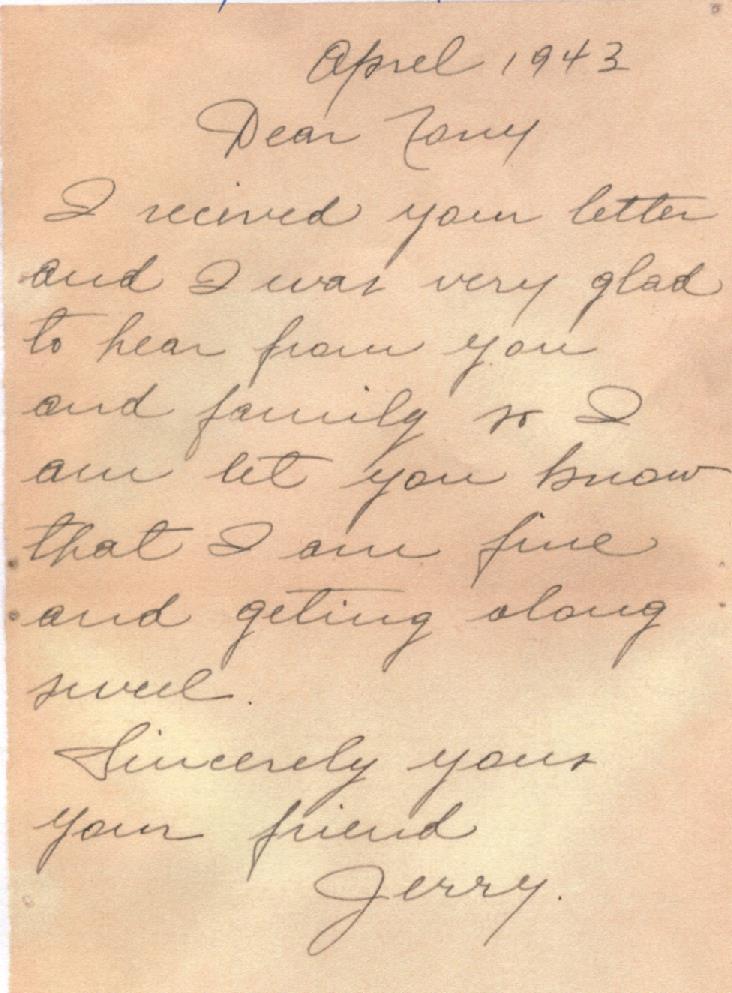 April 1943
Dear Tony
I recived your letter
and I was very glad
to hear from you
and family so I
am let you know
that I am fine
and geting along
swell.
Sincerely yours
your friend
Jerry.